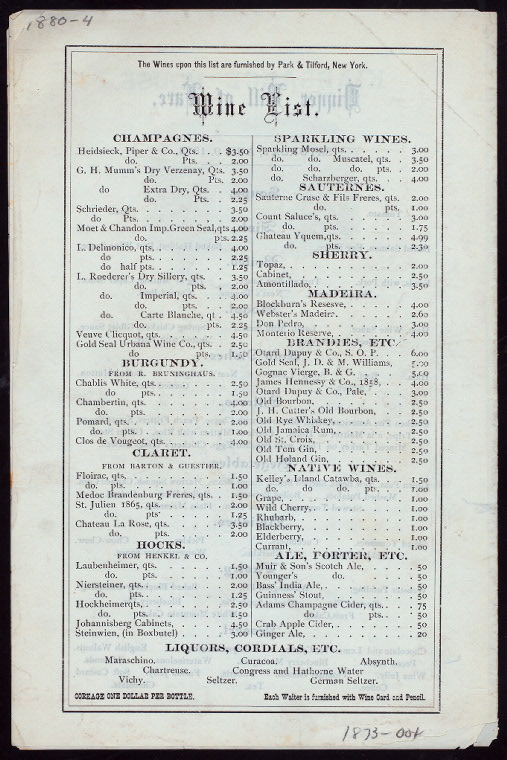 1880-4
The Wines upon this list are furnished by Park & Tilford, New York.
Wine List.
CHAMPAGNES.
Heidsieck, Piper & Co., Qts. . . $3.50
do. Pts. . . 2.00
G. H. Mumm's Dry Verzenay, Qts. 3.50
do. Pts. 2.00
do Extra Dry, Qts. . 4.00
do. Pts. . 2.25
Schrieder, Qts. . . . . . 3.50
do Pts. . . . . . 2.00
Moet & Chandon Imp. Green Seal, qts 4.00
do. pts. 2.25
L. Delmonico, qts. . . . . 4.00
do. pts. . . . . 2.25
do half pts. . . . . 1.25
L. Roederer's Dry Sillery, qts. . 3.50
do. pts. . 2.00
do. Imperial, qts. . . 4.00
do. pts. . . 2.00
do. Carte Blanche, qt . 4.50
do. pts. . 2.25
Veuve Clicquot, qts. . . . . 4.50
Gold Seal Urbana Wine Co., qts. . 2.50
do pts. . 1.50
BURGUNDY.
FROM R. BRUNINGHAUS.
Chablis White, qts. . . . . 2.50
do pts. . . . . 1.50
Chambertin, qts. . . . . 4.00
do. pts. . . . . 2.00
Pomard, qts. . . . . 2.00
do. pts. . . . . 1.00
Clos de Vougeot, qts. . . . . 4.00
CLARET.
FROM BARTON & GUESTIER.
Floirac, qts. . . . . 1.50
do. pts. . . . . 1.00
Medoc Brandenburg Freres, qts. . 1.50
St. Julien 1865, qts. . . . . 2.00
do. pts' . . . . 1.25
Chateau La Rose, qts. . . . . 3.50
do. pts. . . . . 2.00
HOCKS.
FROM HENKEL & CO.
Laubenheimer, qts. . . . . 1.50
do. pts. . . . . 1.00
Niersteiner, qts. . . . . 2.00
do. pts. . . . . 1.25
Hockheimerqts, . . . . 2.50
do. pts. . . . . 1.50
Johannisberg Cabinets, . . . . 4.50
Steinwien, (in Boxbutel) . . . 3.00
SPARKLING WINES.
Sparkling Mosel, qts. . . . . 3.00
do. do. Muscatel, qts. . 3.50
do. do. do. pts. . 2.00
do. Scharzberger, qts. . 4.00
SAUTERNES.
Sauterne Cruse & Fils Freres, qts. 2.00
do. pts. 1.00
Count Saluce's, qts. . . . . 3.00
do. pts. . . . . 1.75
Chateau Yquem, qts. . . . . 4.99
do. pts. . . . . 2.30
SHERRY.
Topaz, . . . . 2.00
Cabinet, . . . . 2.50
Amontillado, . . . . 3.50
MADEIRA.
Blockburn's Resesve, . . . . 4.00
Webster's Madeira. . . . . 2.60
Don Pedro, . . . . 3.00
Monterio Reserve, . . . . 4.00
BRANDIES, ETC.
Otard Dupuy & Co., S. O. P. . 6.00
Gold Seal, J. D. & M. Williams, 5.00
Cognac Vierge, B. & G. . . . 5.00
James Hennessy & Co., 1858, . 4.00
Otard Dupuy & Co., Pale, . . 3.00
Old Bourbon, . . . . 2.50
J. H. Cutter's Old Bourbon, . 2.50
Old Rye Whiskey, . . . . 2.50
Old Jamaica Rum, . . . . 2.50
Old St. Croix, . . . . 2.50
Old Tom Gin, . . . . 2.50
Old Holand Gin, . . . . 2.50
NATIVE WINES.
Kelley's Island Catawba, qts. . 1.50
do. do do. pts. . 1.00
Grape, . . . . 1.00
Wild Cherry, . . . . 1.00
Rhubarb, . . . . 1.00
Blackberry, . . . . 1.00
Elderberry, . . . . 1.00
Currant, . . . . 1.00
ALE, PORTER, ETC.
Muir & Son's Scotch Ale, . . . 50
Younger's do. . . . 50
Bass' India Ale, . . . . 50
Guinness' Stout, . . . . 50
Adams Champagne Cider, qts. . 75
do do. pts. . 50
Crab Apple Cider, . . . . 50
Ginger Ale, . . . . 20
LIQUORS, CORDIALS, ETC.
Maraschino. Curacoa. Absynth.
Chartreuse. Congress and Hathorne Water
Vichy. Seltzer. German Seltzer.
CORKAGE ONE DOLLAR PER BOTTLE. Each Waiter is furnished with Wine Card and Pencil.